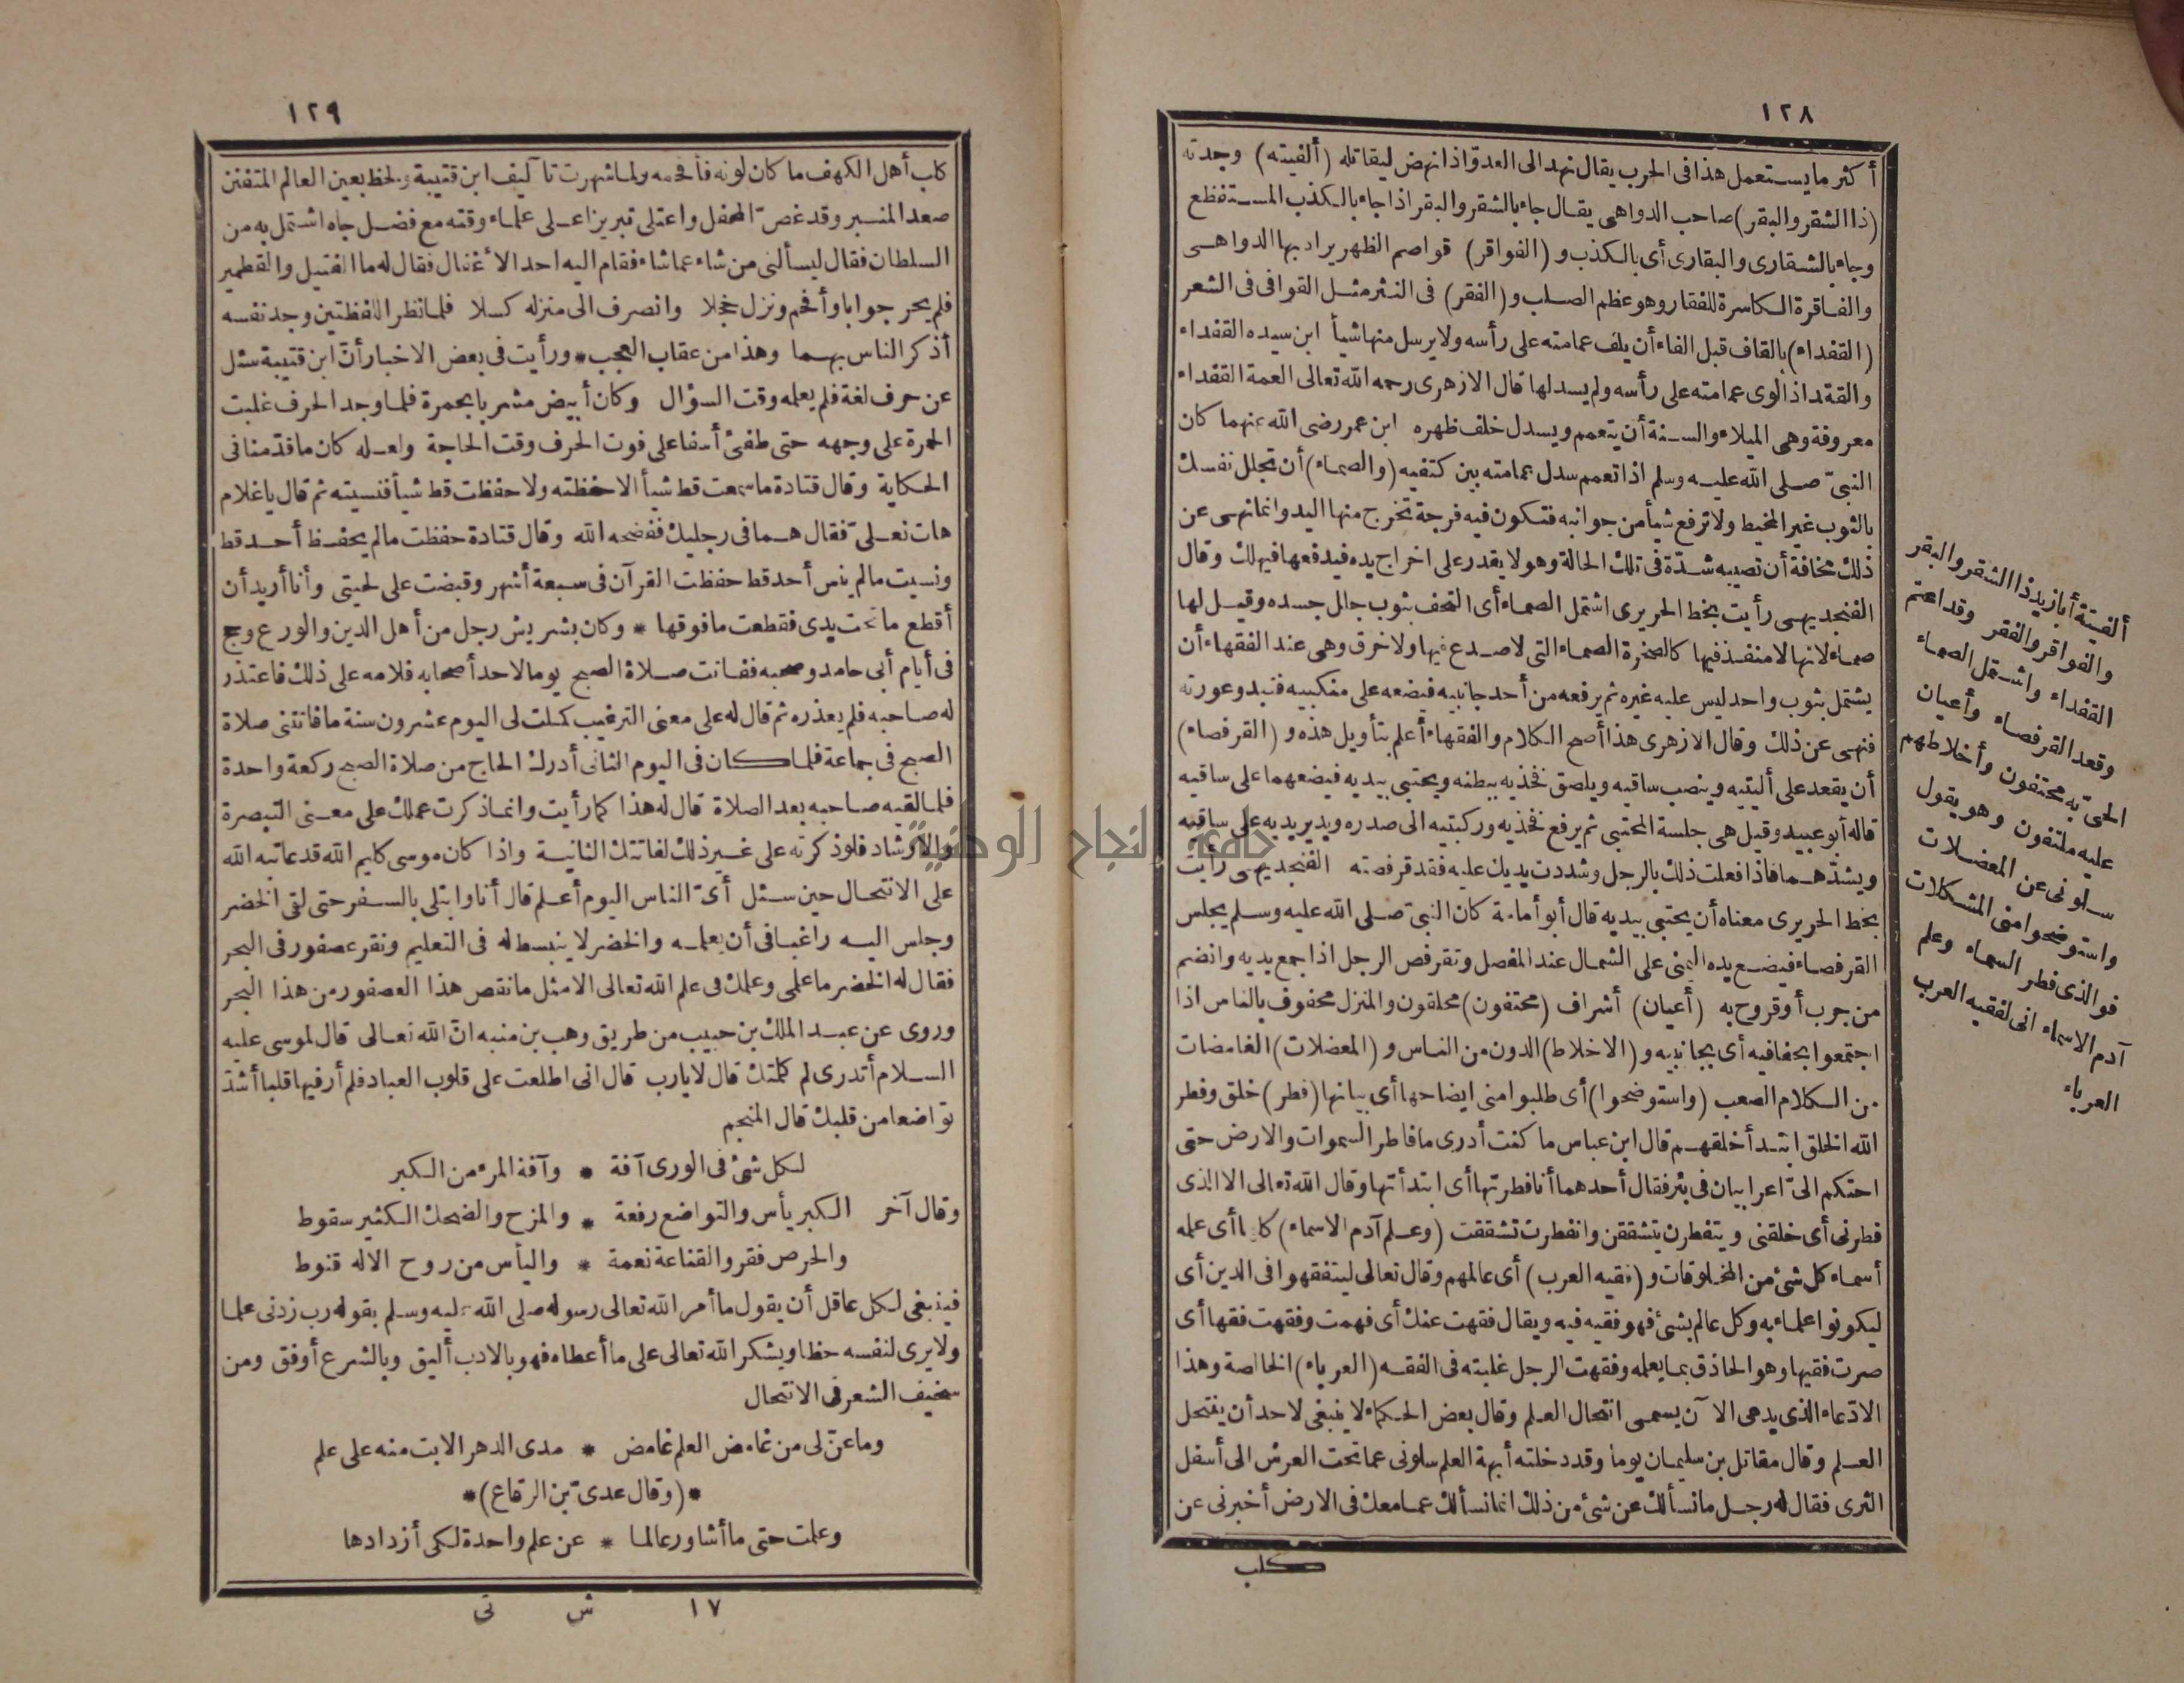 ١٢٨
أكثر ما يستعمل هذا فى الحرب يقال نهد الى العدو اذا نهض ليقاتله (ألفيته) وجدته
(ذا الشقر والبقر) صاحب الدواهى يقال جاء بالشقر والبقر اذا جاء بالكذب المستفظع
وجاء بالشقارى والبقارى أى بالكذب و(الفواقر) قواصم الظهر يراد بها الدواهى
والفاقرة الكاسرة للفقار وهو عظم الصلب و(الفقر) فى النثر مثل القوافى فى الشعر
(القفداء) بالقاف قبل الفاء أن يلف عمامته على رأسه ولا يرسل منها شيأ ابن سيده القفداء
والقفد اذا لوى عمامته على رأسه ولم يسدلها قال الازهرى رحمه الله تعالى العمة القفداء
معروفة وهى الميلاء والسنة أن يتعمم ويسدل خلف ظهره ابن عمر رضى الله عنهما كان
النبىّ صلى الله عليه وسلم اذا تعمم سدل عمامته بين كتفيه (والصماء) أن تجلل نفسك
بالثوب غير المخيط ولا ترفع شيأ من جوانبه فتكون فيه فرجة تخرج منها اليد وانما نهى عن
ذلك مخافة أن تصيبه شدّة فى تلك الحالة وهو لا يقدر على اخراج يده فيدفعها فيهلك وقال
الفنجديهى رأيت بخط الحريرى اشتمل الصماء أى التحف بثوب جال جسده وقيل لها
صماء لانها لا منفذ فيها كالصخرة الصماء التى لا صدع فيها ولا خرق وهى عند الفقهاء أن
يشتمل بثوب واحد ليس عليه غيره ثم يرفعه من أحد جانبيه فيضعه على منكبيه فتبدو عورته
فنهى عن ذلك وقال الازهرى هذا أصح الكلام والفقهاء أعلم بتأويل هذه و(القرفصاء)
أن يقعد على أليتيه وينصب ساقيه ويلصق فخذيه ببطنه ويحتبى بيديه فيضعهما على ساقيه
قاله أبو عبيد وقيل هى جلسة المحتبى ثم يرفع فخذيه وركبتيه الى صدره ويدير يديه على ساقيه
ويشدّهما فاذا فعلت ذلك بالرجل وشددت يديك عليه فقد قرفصته الفنجديهى رأيت
بخط الحريرى معناه أن يحتبى بيديه قال أبو أمامة كان النبىّ صلى الله عليه وسلم يجلس
القرفصاء فيضع يده اليمنى على الشمال عند المفصل وتقرفص الرجل اذا جمع يديه وانضم
من جرب أو قروح به (أعيان) أشراف (محتفون) محلقون والمنزل محفوف بالناس اذا
اجتمعوا بحفافيه أى بجانبيه و(الاخلاط) الدون من الناس و(المعضلات) الغامضات
من الكلام الصعب (واستوضحوا) أى طلبوا منى ايضاحها أى بيانها (فطر) خلق وفطر
الله الخلق ابتدأ خلقهم قال ابن عباس ما كنت أدرى ما فاطر السموات والارض حتى
احتكم الىّ اعرابيان فى بئر فقال أحدهما أنا فطرتها أى ابتدأتها وقال الله تعالى الا الذى
فطرنى أى خلقنى ويتفطرن يتشققن وانفطرت تشققت (وعلم آدم الاسماء) كلها أى علمه
أسماء كل شئ من المخلوقات و(فقيه العرب) أى عالمهم وقال تعالى ليتفقهوا فى الدين أى
ليكونوا علماء به وكل عالم بشئ فهو فقيه فيه ويقال فقهت عنك أى فهمت وفقهت فقها أى
صرت فقيها وهو الحاذق بما يعلمه وفقهت الرجل غلبته فى الفقه (العرباء) الخالصة وهذا
الادّعاء الذى يدعى الآن يسمى انتحال العلم وقال بعض الحكماء لا ينبغى لاحد أن ينتحل
العلم وقال مقاتل بن سليمان يوما وقد دخلته أبهة العلم سلونى عما تحت العرش الى أسفل
الثرى فقال له رجل ما نسألك عن شئ من ذلك انما نسألك عما معك فى الارض أخبرنى عن
كلب
ألفيتة أبا زيد ذا الشقر والبقر
والفواقر والفقر وقد اعتم
القفداء واشتمل الصماء
وقعد القرفصاء وأعيان
الحىّ به محتفون وأخلاطهم
عليه ملتفون وهو يقول
سلونى عن المعضلات
واستوضحوا منى المشكلات
فوالذى فطر السماء وعلم
آدم الاسماء انى لفقيه العرب
العرباء
١٢٩
كلب أهل الكهف ما كان لونه فأفحمه ولما شهرت تآليف ابن قتيبة ولحظ بعين العالم المتفنن
صعد المنبر وقد غصّ المحفل واعتلى تبريزا على علماء وقته مع فضل جاه اشتمل به من
السلطان فقال ليسألنى من شاء عما شاء فقام اليه احد الأغفال فقال له ما الفتيل والقطمير
فلم يحر جوابا وأفحم ونزل خجلا وانصرف الى منزله كسلا فلما نظر اللفظتين وجد نفسه
أذكر الناس بهما وهذا من عقاب العجب * ورأيت فى بعض الاخبار أنّ ابن قتيبة سئل
عن حرف لغة فلم يعلمه وقت السؤال وكان أبيض مشربا بحمرة فلما وجد الحرف غلبت
الحمرة على وجهه حتى طفئ أسفا على فوت الحرف وقت الحاجة ولعله كان ما قدّمنا فى
الحكاية وقال قتادة ما سمعت قط شيأ الا حفظته ولا حفظت قط شيأ فنسيته ثم قال يا غلام
هات نعلىّ فقال هما فى رجليك ففضحه الله وقال قتادة حفظت ما لم يحفظ أحد قط
ونسيت ما لم ينس أحد قط حفظت القرآن فى سبعة أشهر وقبضت على لحيتى وأنا أريد أن
أقطع ما تحت يدى فقطعت ما فوقها * وكان بشريش رجل من أهل الدين والورع وحج
فى أيام أبى حامد وصحبه ففاتت صلاة الصبح يوما لاحد أصحابه فلامه على ذلك فاعتذر
له صاحبه فلم يعذره ثم قال له على معنى الترغيب كملت لى اليوم عشرون سنة ما فاتتنى صلاة
الصبح فى جماعة فلما كان فى اليوم الثانى أدرك الحاج من صلاة الصبح ركعة واحدة
فلما لقيه صاحبه بعد الصلاة قال له هذا كما رأيت وانما ذكرت عملك على معنى التبصرة
والارشاد فلو ذكرته على غير ذلك لفاتتك الثانية واذا كان موسى كليم الله قد عاتبه الله
على الانتحال حين سئل أىّ الناس اليوم أعلم قال أنا وابتلى بالسفر حتى لقى الخضر
وجلس اليه راغبا فى أن يعلمه والخضر لا ينبسط له فى التعليم ونقر عصفور فى البحر
فقال له الخضر ما علمى وعلمك فى علم الله تعالى الا مثل ما نقص هذا العصفور من هذا البحر
وروى عن عبد الملك بن حبيب من طريق وهب بن منبه انّ الله تعالى قال لموسى عليه
السلام أتدرى لم كلمتك قال لا يارب قال انى اطلعت على قلوب العباد فلم أر فيها قلبا أشدّ
تواضعا من قلبك قال المنجم
لكل شئ فى الورى آفة * وآفة المرء من الكبر
وقال آخر الكبر يأس والتواضع رفعة * والمزح والضحك الكثير سقوط
والحرص فقر والقناعة نعمة * واليأس من روح الاله قنوط
فينبغى لكل عاقل أن يقول ما أمر الله تعالى رسوله صلى الله عليه وسلم بقوله رب زدنى علما
ولا يرى لنفسه حظا ويشكر الله تعالى على ما أعطاه فهو بالادب أليق وبالشرع أوفق ومن
سخيف الشعر فى الانتحال
وما عنّ لى من غامض العلم غامض * مدى الدهر الا بت منه على علم
*(وقال عدىّ بن الرقاع)*
وعلمت حتى ما أشاور عالما * عن علم واحدة لكى أزدادها
١٧ ش نى
جامعة النجاح الوطنية